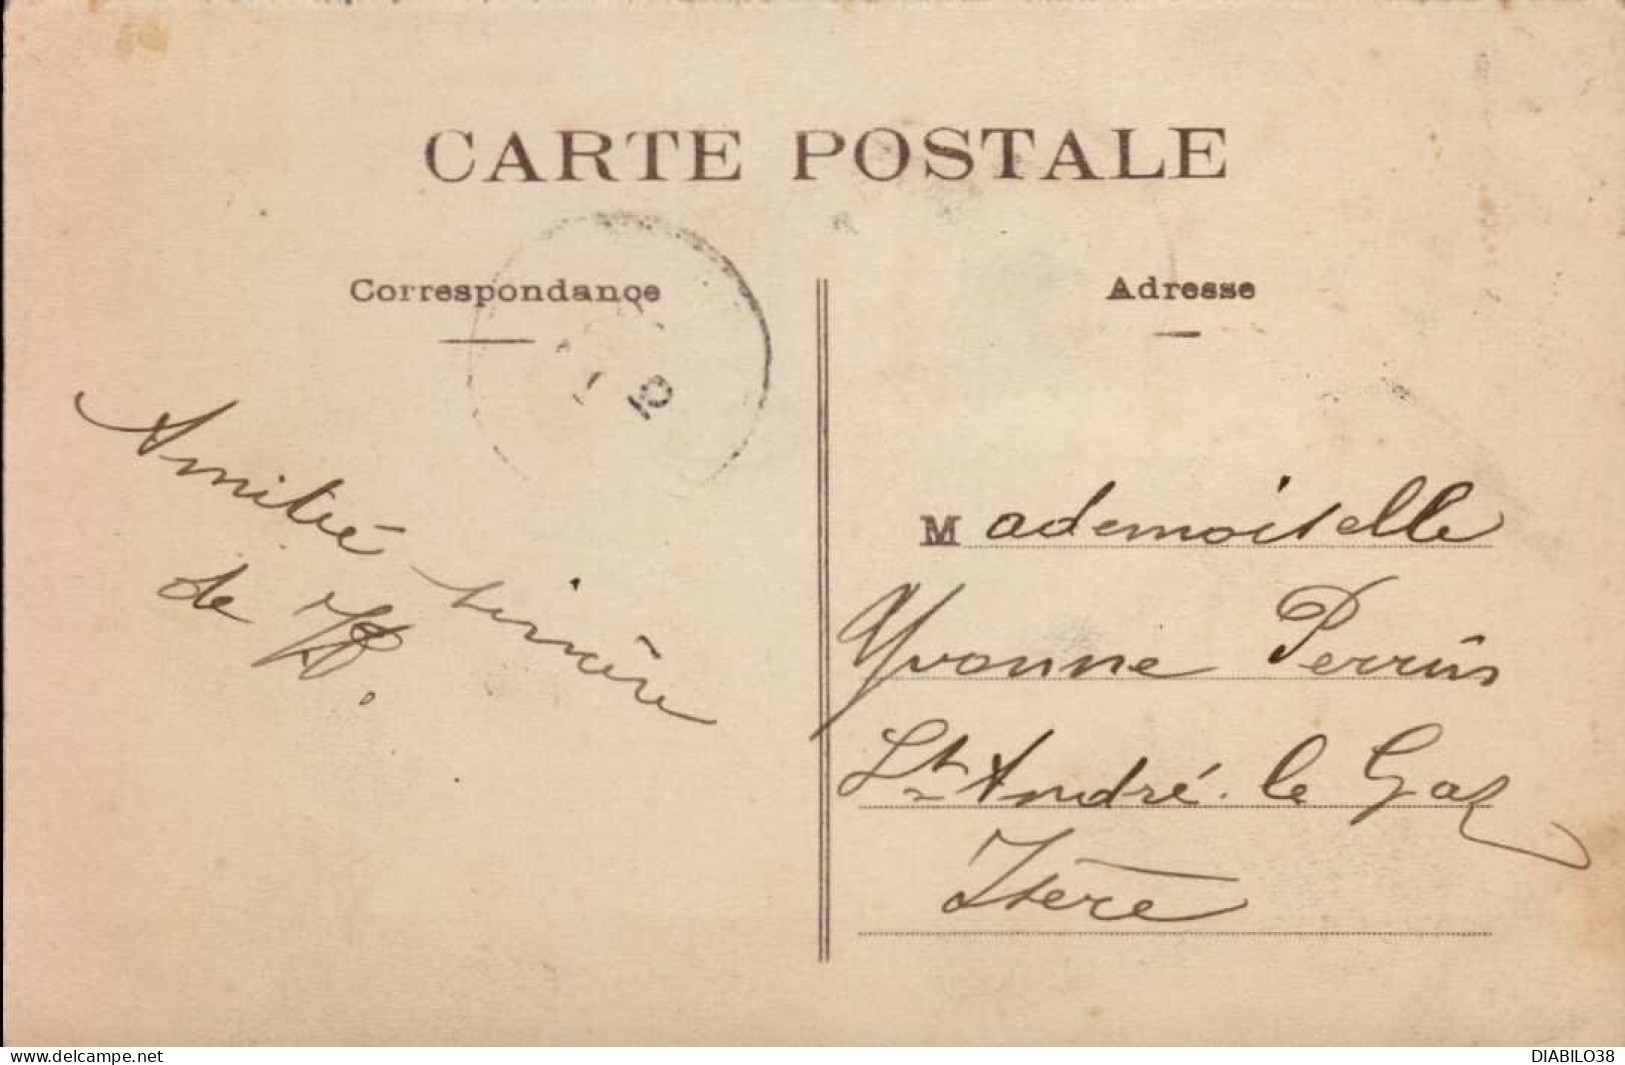 CARTE POSTALE
Correspondance
Adresse
10
Amitié sincère
de
Mademoiselle
Yvonne Perrin
St André. le Gaz
Isère
www.delcampe.net
DIABILO38